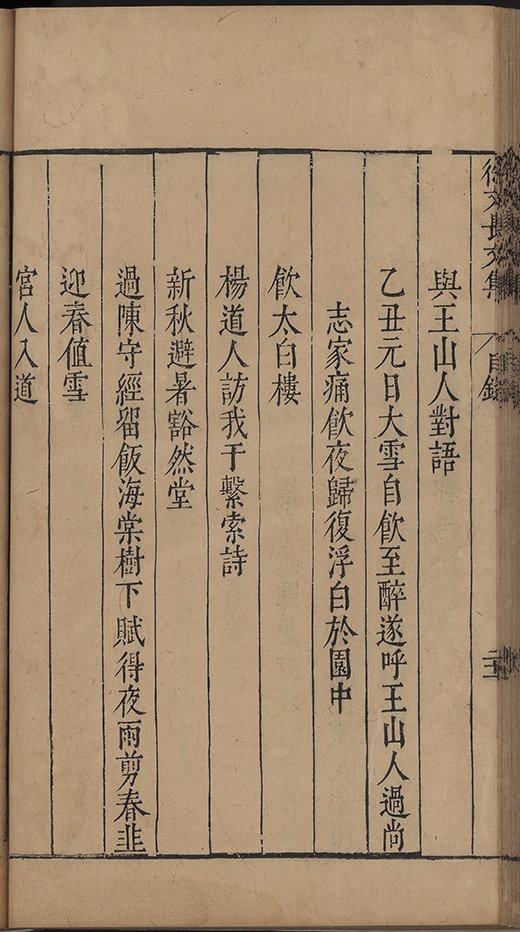 徐文長文集 目錄
與王山人對語
乙丑元日大雪自飲至醉遂呼王山人過尚
志家痛飲夜歸復浮白於園中
飲太白樓
楊道人訪我于繫索詩
新秋避暑豁然堂
過陳守經留飯海棠樹下賦得夜雨剪春韭
迎春值雪
宮人入道